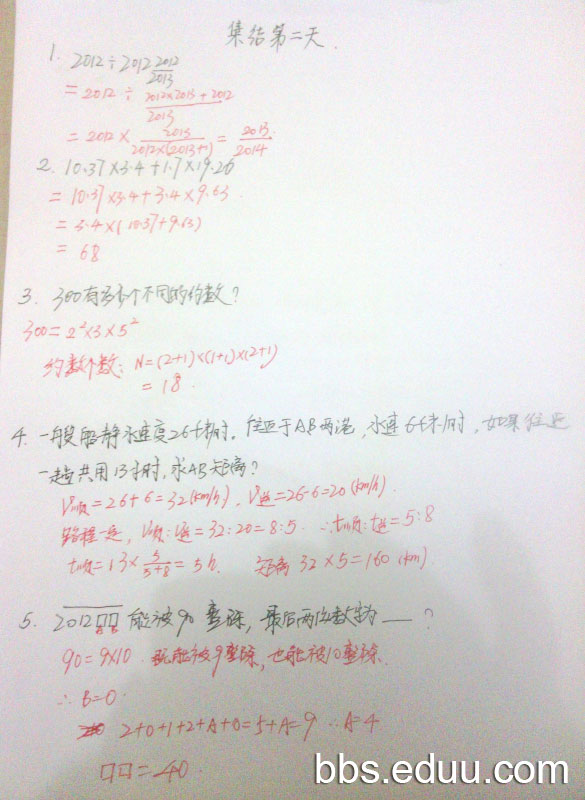 集结第二天.
1. 2012÷2012 2012/2013
=2012÷ (2012×2013+2012)/2013
=2012× 2013/(2012×(2013+1)) = 2013/2014
2. 10.37×3.4+1.7×19.26
=10.37×3.4+3.4×9.63
=3.4×(10.37+9.63)
=68
3. 300有多少个不同的约数?
300=2²×3×5²
约数个数: N=(2+1)×(1+1)×(2+1)
=18.
4. 一般船静水速度26千米/时, 往返于AB两港, 水速6千米/时, 如果往返
一趟共用13小时, 求AB距离?
V顺=26+6=32(km/h), V逆=26-6=20(km/h).
路程一定, V顺:V逆=32:20=8:5. ∴t顺:t逆=5:8
t顺=13× 5/(5+8) =5h. 距离 32×5=160(km).
5. 2012□□ 能被90整除, 最后两位数为 ___ ?
A B
90=9×10 既能被9整除, 也能被10整除.
∴ B=0
2+0+1+2+A+0=5+A=9 ∴A=4
□□=40.
bbs.eduu.com